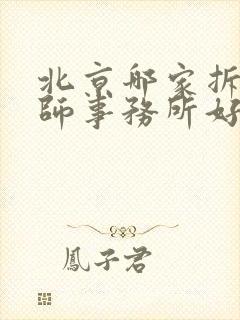 北京那家拆
師事務所好
鳳子君